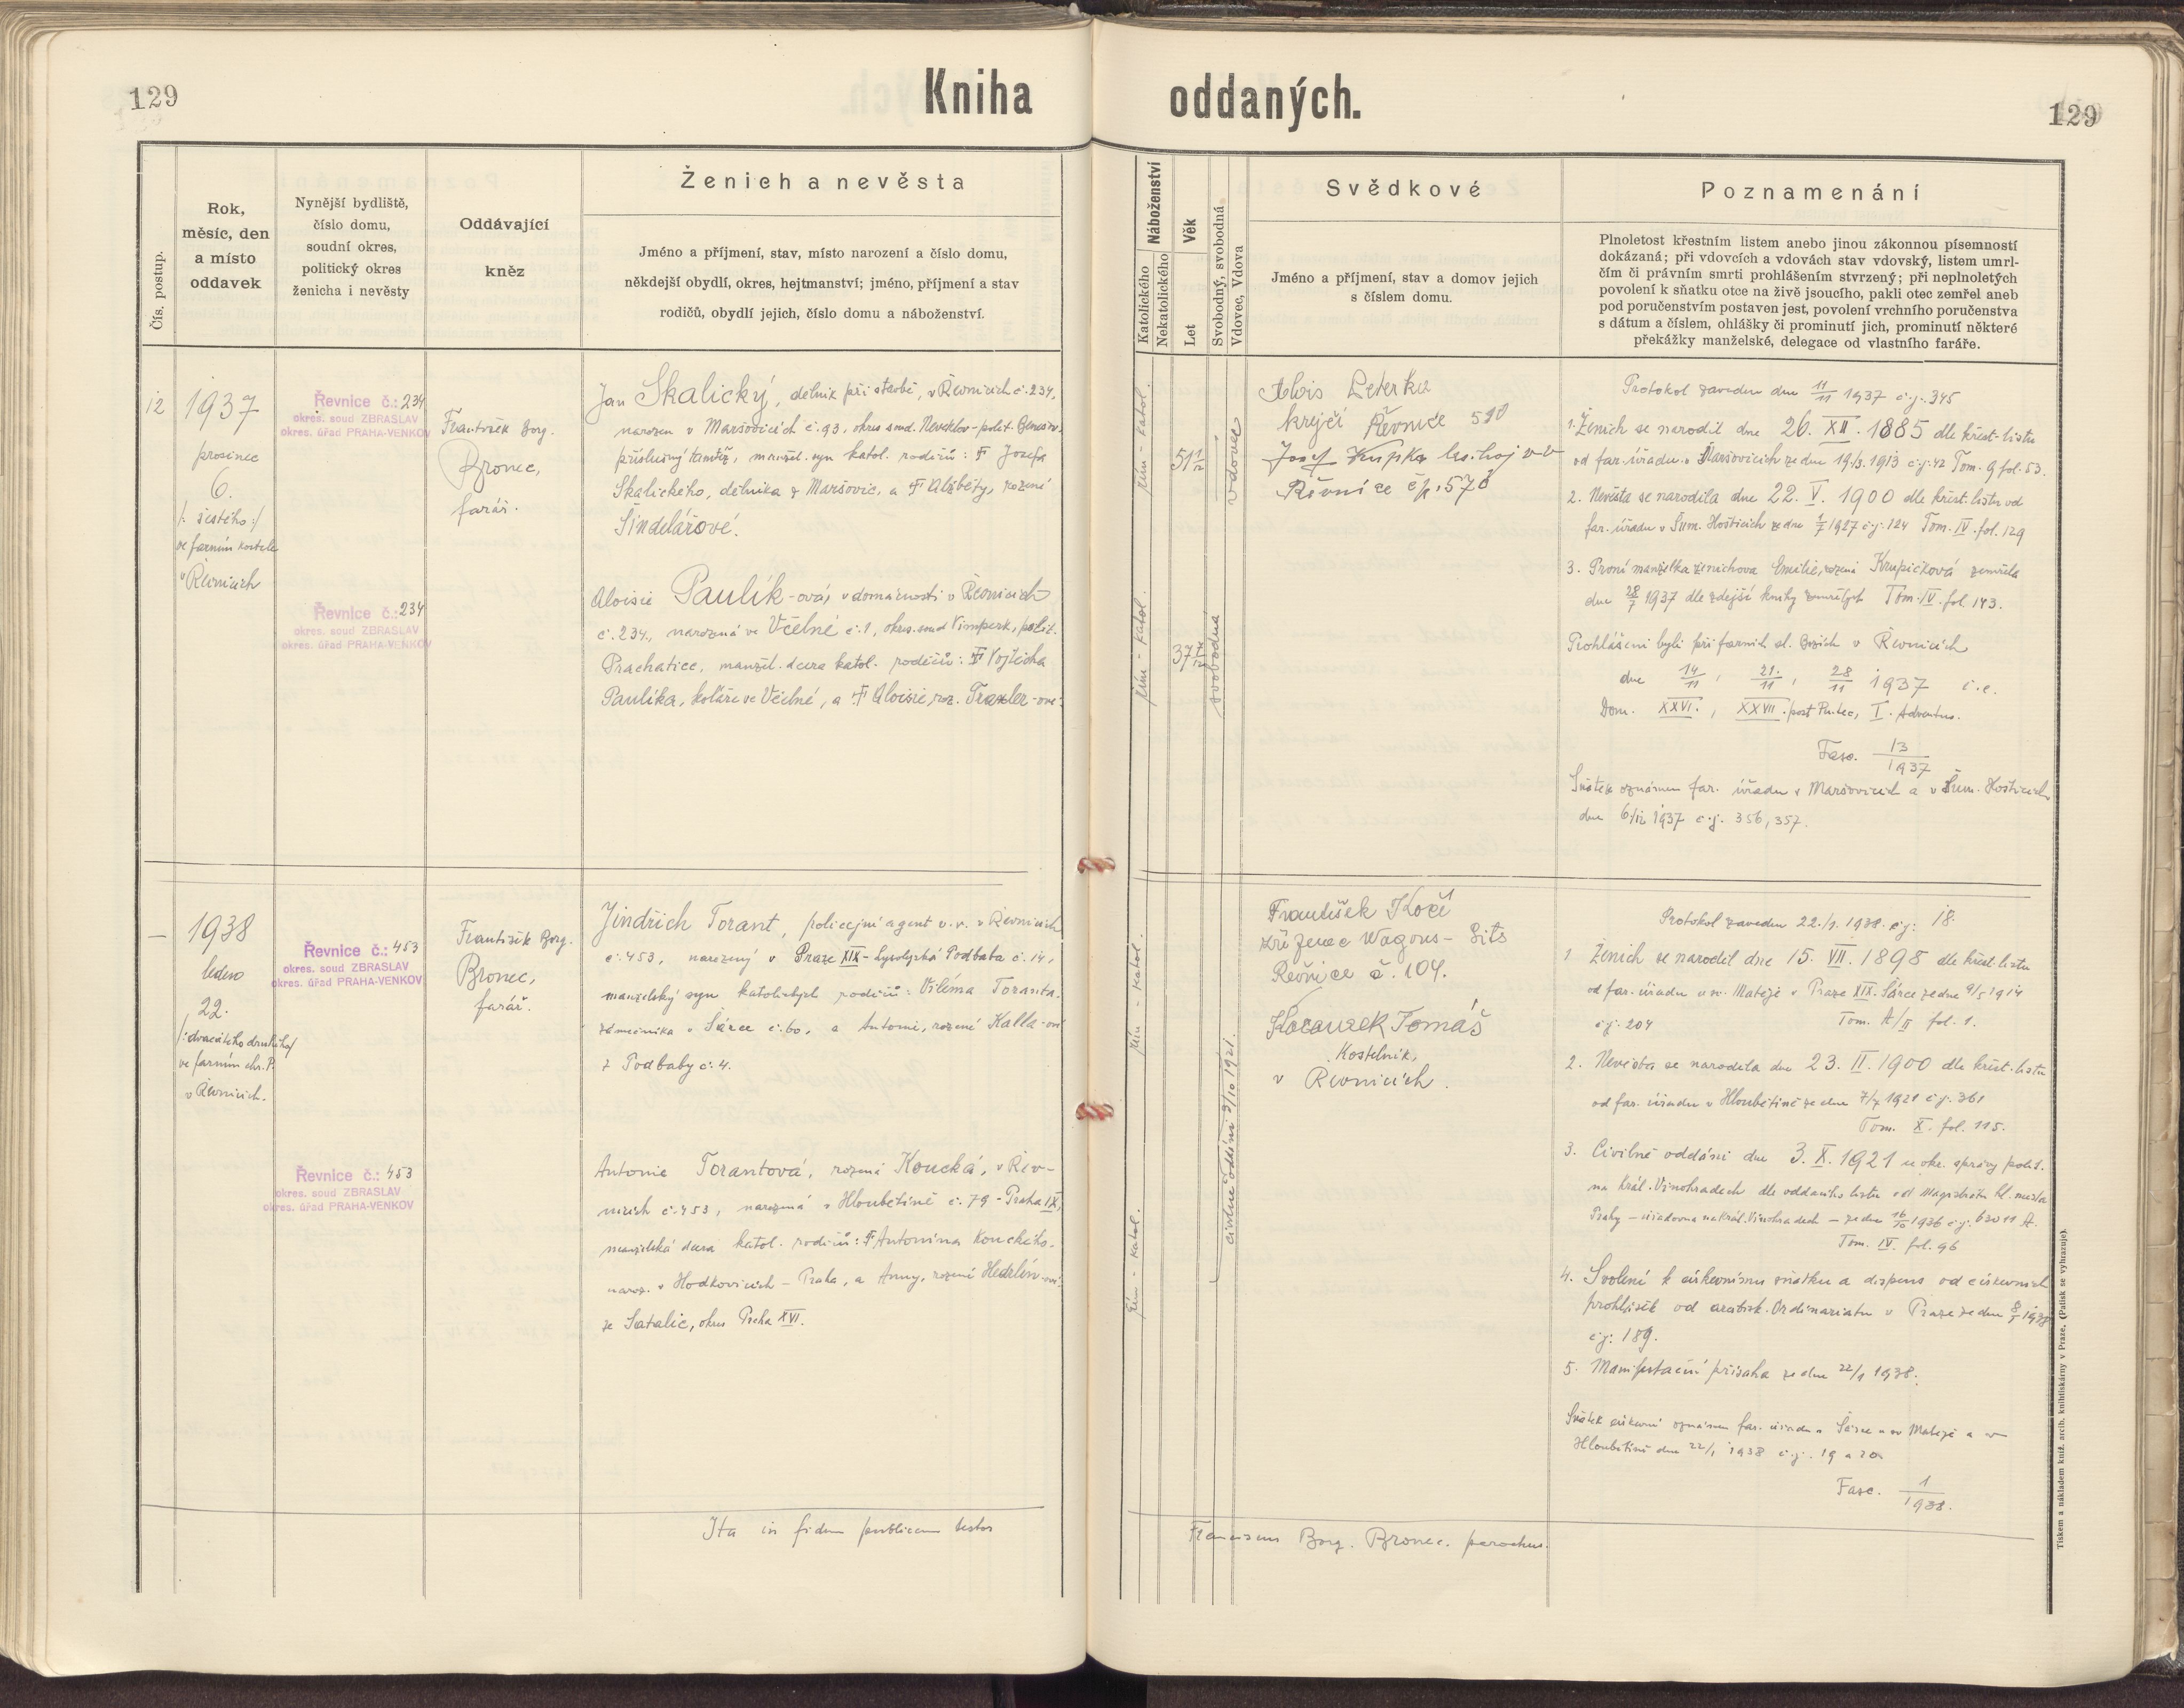 129
Kniha oddaných.
129
Čís. postup.
Rok,
měsíc, den
a místo
oddavek
Nynější bydliště,
číslo domu,
soudní okres,
politický okres
ženicha i nevěsty
Oddávající
kněz
Ženich a nevěsta
Jméno a příjmení, stav, místo narození a číslo domu,
někdejší obydlí, okres, hejtmanství; jméno, příjmení a stav
rodičů, obydlí jejich, číslo domu a náboženství.
Náboženství
Katolického
Nekatolického
Věk
Let
Svobodný, svobodná
Vdovec, Vdova
Svědkové
Jméno a příjmení, stav a domov jejich
s číslem domu.
Poznamenání
Plnoletost křestním listem anebo jinou zákonnou písemností
dokázaná; při vdovcích a vdovách stav vdovský, listem umrl-
čím či právním smrti prohlášením stvrzený; při neplnoletých
povolení k sňatku otce na živě jsoucího, pakli otec zemřel aneb
pod poručenstvím postaven jest, povolení vrchního poručenstva
s dátum a číslem, ohlášky či prominutí jich, prominutí některé
překážky manželské, delegace od vlastního faráře.
12
1937
prosinec
6.
/: šestého :/
ve farním kostele
v Řevnicích
Řevnice č.: 234
okres. soud ZBRASLAV
okres. úřad PRAHA-VENKOV
Řevnice č.: 234
okres. soud ZBRASLAV
okres. úřad PRAHA-VENKOV
František Borg.
Bronec,
farář.
Jan Skalický, dělník při stavbě, v Řevnicích č. 234,
narozen v Maršovicích č. 93, okres soud. Neveklov - polit. Benešov,
příslušný tamtéž, manžel. syn katol. rodičů: † Josefa
Skalického, dělníka z Maršovic, a † Alžběty, rozené
Šindelářové.
Aloisie Paulík-ová, v domácnosti v Řevnicích
č. 234, narozená ve Včelné č. 1, okres. soud Vimperk, polit.
Prachatice, manžel. dcera katol. rodičů: † Vojtěcha
Paulíka, koláře ve Včelné, a † Aloisie, roz. Traxler-ové.
řím - katol.
řím - katol.
51
37
vdovec
svobodná
Alois Peterka
krejčí Řevnice 590
Josef Krupka les. haj v v
Řevnice čp. 570
Protokol zaveden dne 11/11 1937 č.j. 345
1. Ženich se narodil dne 26. XII. 1885 dle křest. listu
od far. úřadu v Maršovicích ze dne 19/3. 1913 č.j. 42 Tom. 9 fol. 53.
2. Nevěsta se narodila dne 22. V. 1900 dle křest. listu od
far. úřadu v Šum. Hošticích ze dne 1/7 1927 č.j. 124 Tom. IV. fol. 129
3. První manželka ženichova Emilie, rozená Krupičková zemřela
dne 28/7 1937 dle zdejší knihy zemřelých Tom. IV. fol. 143.
Prohlášeni byli při farních sl. Božích v Řevnicích
dne 14/11, 21./11, 28/11 1937 i.e.
Dom. XXVI., XXVII. post Pentec, I. Adventus.
Fasc. 13/1937
Sňatek oznámen far. úřadu v Maršovicích a v Šum. Hošticích
dne 6/12 1937 č.j. 356, 357.
—
1938
leden
22.
/: dvacátého druhého /
ve farním chr. P.
v Řevnicích.
Řevnice č.: 453
okres. soud ZBRASLAV
okres. úřad PRAHA-VENKOV
Řevnice č.: 453
okres. soud ZBRASLAV
okres. úřad PRAHA-VENKOV
František Borg.
Bronec,
farář.
Jindřich Torant, policejní agent v. v. v Řevnicích
č. 453, narozený v Praze XIX - Lysolajská Podbaba č. 14,
manželský syn katolických rodičů: Viléma Toranta,
zámečníka v Šárce č. 60, a Antonie, rozené Kalla-ové
z Podbaby č. 4.
Antonie Torantová, rozená Koucká, v Řev-
nicích č. 453, narozená v Hloubětíně č. 79 - Praha IX,
manželská dcera katol. rodičů: † Antonína Kouckého,
naroz. v Hodkovicích - Praha, a Anny, rozené Hedrlín-ové
ze Satalic, okres Praha XVI.
řím - katol.
řím - katol.
civilně oddáni 3/10 1921.
František Kočí
zřízenec Wagons-Lits
Řevnice č. 104.
Kocourek Tomáš
Kostelník,
v Řevnicích.
Protokol zaveden 22./1. 1938. č.j: 18.
1 Ženich se narodil dne 15. VII. 1898 dle křest. listu
od far. úřadu u sv. Matěje v Praze XIX. Šárce ze dne 9/5 1914
č.j. 204 Tom. A/II fol. 1.
2. Nevěsta se narodila dne 23. II. 1900 dle křest. listu
od far. úřadu v Hloubětíně ze dne 7/7 1921 č.j. 361
Tom. X. fol. 115.
3. Civilně oddáni dne 3. X. 1921 u okr. správy polit.
na Král. Vinohradech dle oddacího listu od Magistrátu hl. města
Prahy - úřadovna na Král. Vinohradech - ze dne 16/10 1936 č.j. 63011 A.
Tom. IV. fol. 96
4. Svolení k církevnímu sňatku a dispens od církevních
prohlášek od arcibisk. Ordinariatu v Praze ze dne 8/1 1938
č.j: 189.
5. Manifestační přísaha ze dne 22/1 1938.
Sňatek církevní oznámen far. úřadu v Šárce u sv Matěje a v
Hloubětíně dne 22/1 1938 č.j. 19 a 20
Fasc. 1/1938.
Ita in fidem publicam testor
Franciscus Borg. Bronec, parochus.
Tiskem a nákladem kníž. arcib. knihtiskárny v Praze. (Patisk se vyhrazuje).